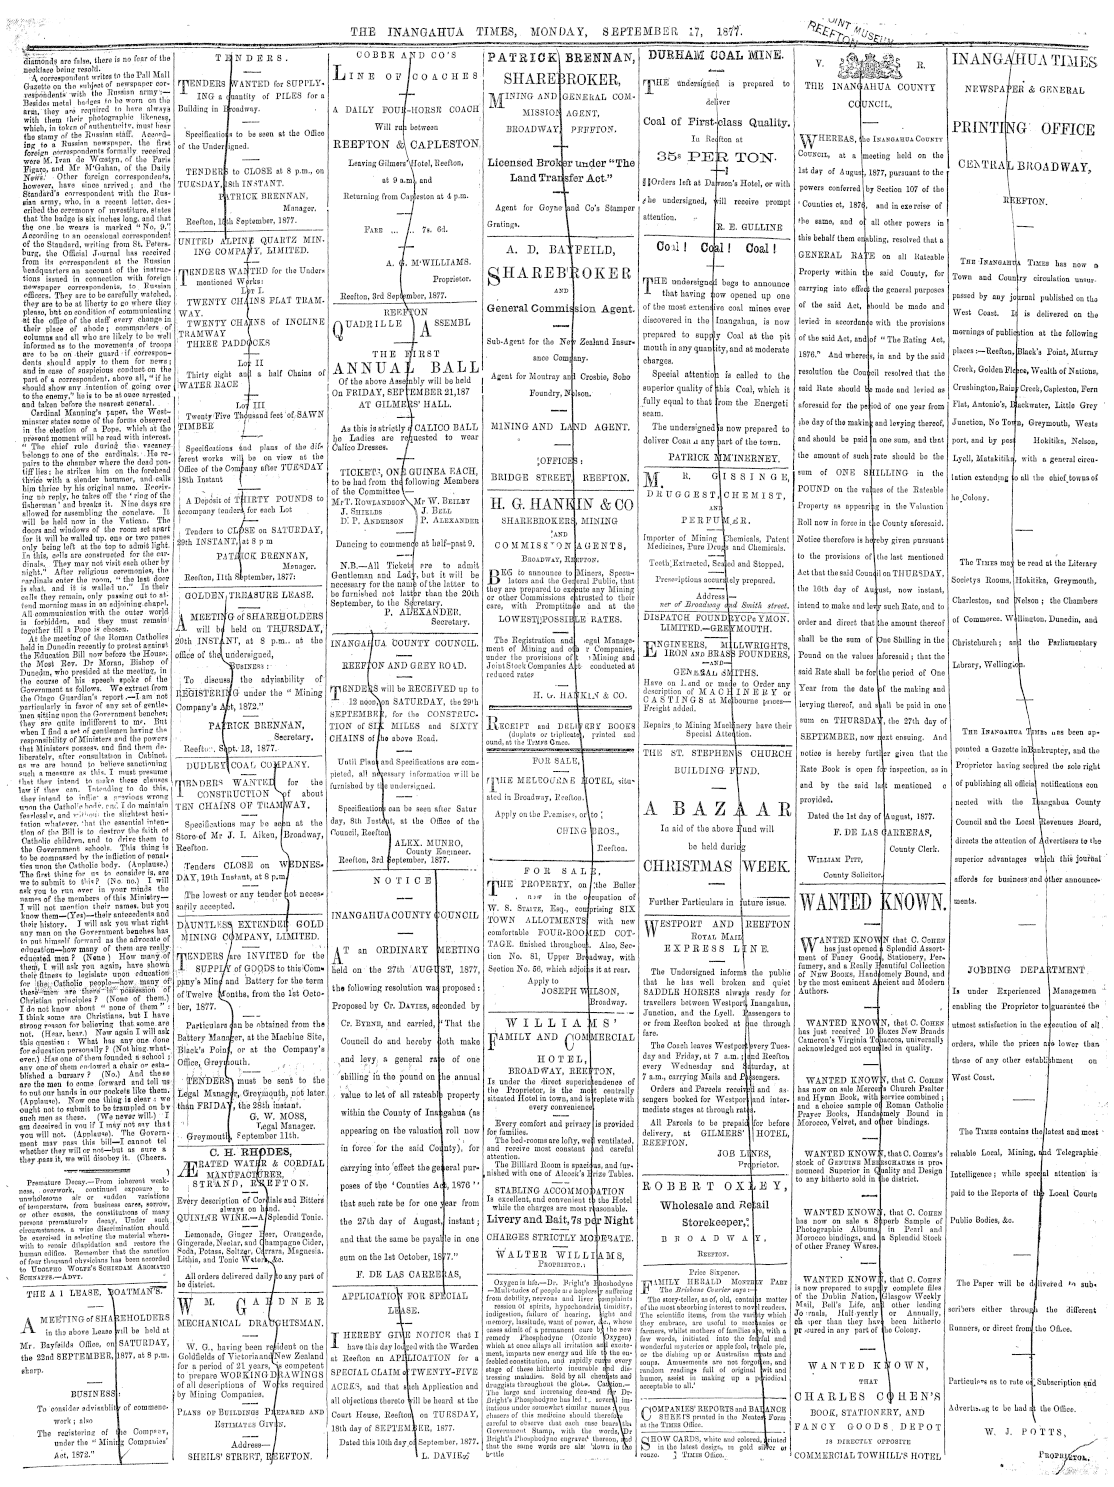 THE INANGAHUA TIMES, MONDAY, SEPTEMBER 17, 1877.
diamonds are false, there is no fear of the
necklace being resold.
A correspondent writes to the Pall Mall
Gazette on the subject of newspaper cor-
respondents with the Russian army:—
Besides metal badges to be worn on the
arm, they are required to have always
with them their photographic likeness,
which, in token of authenticity, must bear
the stamp of the Russian staff. Accord-
ing to a Russian newspaper, the first
foreign correspondents formally received
were M. Ivan de Wœstyn, of the Paris
Figaro, and Mr M'Gahan, of the Daily
News. Other foreign correspondents,
however, have since arrived; and the
Standard's correspondent with the Rus-
sian army, who, in a recent letter, des-
cribed the ceremony of investiture, states
that the badge is six inches long, and that
the one he wears is marked "No. 9."
According to an occasional correspondent
of the Standard, writing from St. Peters-
burg, the Official Journal has received
from its correspondent at the Russian
headquarters an account of the instruc-
tions issued in connection with foreign
newspaper correspondents, to Russian
officers. They are to be carefully watched,
they are to be at liberty to go where they
please, but on condition of communicating
at the office of the staff every change in
their place of abode; commanders of
columns and all who are likely to be well
informed as to the movements of troops
are to be on their guard if correspon-
dents should apply to them for news;
and in case of suspicious conduct on the
part of a correspondent, above all, "if he
should show any intention of going over
to the enemy," he is to be at once arrested
and taken before the nearest general.
Cardinal Manning's paper, the West-
minster states some of the forms observed
in the election of a Pope, which at the
present moment will be read with interest.
"The chief rule during the vacancy
belongs to one of the cardinals. He re-
pairs to the chamber where the dead pon-
tiff lies; he strikes him on the forehead
thrice with a slender hammer, and calls
him thrice by his original name. Receiv-
ing no reply, he takes off the 'ring of the
fisherman' and breaks it. Nine days are
allowed for assembling the conclave. It
will be held now in the Vatican. The
doors and windows of the room set apart
for it will be walled up, one or two panes
only being left at the top to admit light.
In this, cells are constructed for the car-
dinals. They may not visit each other by
night." After religious ceremonies, the
cardinals enter the room, "the last door
is shut, and it is walled up." In their
cells they remain, only passing out to at-
tend morning mass in an adjoining chapel.
All communication with the outer world
is forbidden, and they must remain
together till a Pope is chosen.
At the meeting of the Roman Catholics
held in Dunedin recently to protest against
the Education Bill now before the House,
the Most Rev. Dr Moran, Bishop of
Dunedin, who presided at the meeting, in
the course of his speech spoke of the
Government as follows. We extract from
the Otago Guardian's report:—I am not
particularly in favor of any set of gentle-
men sitting upon the Government benches;
they are quite indifferent to me. But
when I find a set of gentlemen having the
responsibility of Ministers and the powers
that Ministers possess, and find them de-
liberately, after consultation in Cabinet,
as we are bound to believe sanctioning
such a measure as this, I must presume
that they intend to make these clauses
law if they can. Intending to do this,
they intend to inflict a grievous wrong
upon the Catholic body, and I do maintain
fearlessly, and without the slightest hesi-
tation whatever, that the essential inten-
tion of the Bill is to destroy the faith of
Catholic children, and to drive them to
the Government schools. This thing is
to be compassed by the infliction of penal-
ties upon the Catholic body. (Applause.)
The first thing for us to consider is, are
we to submit to this? (No no.) I will
ask you to run over in your minds the
names of the members of this Ministry—
I will not mention their names, but you
know them—(Yes)—their antecedents and
their history. I will ask you what right
any man on the Government benches has
to put himself forward as the advocate of
education—how many of them are really
educated men? (None) How many of
them, I will ask you again, have shown
their fitness to legislate upon education
for the Catholic people—how many of
these men are there in possession of
Christian principles? (None of them.)
I do not know about "none of them";
I think some are Christians, but I have
strong reason for believing that some are
not. (Hear, hear.) Now again I will ask
this question: What has any one done
for education personally? (Nothing what-
ever.) Has one of them founded a school;
any one of them endowed a chair or esta-
blished a bursary? (No.) And these
are the men to come forward and tell us
to put our hands in our pockets like them.
(Applause). Now one thing is clear: we
ought not to submit to be trampled on by
such men as these. (We never will.) I
am deceived in you if I may not say that
you will not. (Applause). The Govern-
ment may pass this bill—I cannot tell
whether they will or not—but as sure a
they pass it, we will disobey it. (Cheers.
Premature Decay.—From inherent weak-
ness, overwork, continued exposure to
unwholesome air or sudden variations
of temperature, from business cares, sorrow,
or other causes, the constitutions of many
persons prematurely decay. Under such
circumstances, a wise discrimination should
be exercised in selecting the material where-
with to repair dilapidation and restore the
human edifice. Remember that the sanction
of four thousand physicians has been accorded
to UDOLPHO WOLFE'S SCHIEDAM AROMATIC
SCHNAPPS.—ADVT.
THE A 1 LEASE, BOATMAN'S.
A MEETING of SHAREHOLDERS
in the above Lease will be held at
Mr. Bayfeilds Office, on SATURDAY,
the 22nd SEPTEMBER, 1877, at 8 p.m.
sharp.
BUSINESS:
To consider advisability of commenc-
work; also
The registering of the Company,
under the "Mining Companies'
Act, 1872."
TENDERS.
TENDERS WANTED for SUPPLY-
ING a quantity of PILES for a
Building in Broadway.
Specifications to be seen at the Office
of the Undersigned.
TENDERS to CLOSE at 8 p.m., on
TUESDAY, 18th INSTANT.
PATRICK BRENNAN,
Manager.
Reefton, 15th September, 1877.
UNITED ALPINE QUARTZ MIN-
ING COMPANY, LIMITED.
TENDERS WANTED for the Under-
mentioned Works:
Lot I.
TWENTY CHAINS FLAT TRAM-
WAY.
TWENTY CHAINS of INCLINE
TRAMWAY
THREE PADDOCKS
Lot II
Thirty eight and a half Chains of
WATER RACE
Lot III
Twenty Five Thousand feet of SAWN
TIMBER
Specifications and plans of the dif-
ferent works will be on view at the
Office of the Company after TUESDAY
18th Instant
A Deposit of THIRTY POUNDS to
accompany tenders for each Lot
Tenders to CLOSE on SATURDAY,
29th INSTANT, at 8 p m
PATRICK BRENNAN,
Manager.
Reefton, 11th September, 1877:
GOLDEN TREASURE LEASE.
A MEETING of SHAREHOLDERS
will be held on THURSDAY,
20th INSTANT, at 8 p.m. at the
office of the undersigned,
Business:
To discuss the advisability of
REGISTERING under the "Mining
Company's Act, 1872."
PATRICK BRENNAN,
Secretary.
Reefton, Sept. 13, 1877.
DUDLEY COAL COMPANY.
TENDERS WANTED for the
CONSTRUCTION of about
TEN CHAINS OF TRAMWAY,
Specifications may be seen at the
Store of Mr J. I. Aiken, Broadway,
Reefton.
Tenders CLOSE on WEDNES-
DAY, 19th Instant, at 8 p.m
The lowest or any tender not neces-
sarily accepted.
DAUNTLESS EXTENDED GOLD
MINING COMPANY, LIMITED.
TENDERS are INVITED for the
SUPPLY of GOODS to this Com-
pany's Mine and Battery for the term
of Twelve Months, from the 1st Octo-
ber, 1877.
Particulars can be obtained from the
Battery Manager, at the Machine Site,
Black's Point, or at the Company's
Office, Greymouth.
TENDERS must be sent to the
Legal Manager, Greymouth, not later
than FRIDAY, the 28th instant.
G. W. MOSS,
Legal Manager.
Greymouth, September 11th.
C. H. RHODES,
ÆRATED WATER & CORDIAL
MANUFACTURER,
STRAND, REEFTON.
Every description of Cordials and Bitters
always on hand.
QUININE WINE.—A Splendid Tonic.
Lemonade, Ginger Beer, Orangeade,
Gingerade, Nectar, and Champagne Cider,
Soda, Potass, Seltzer, Carrara, Magnesia,
Lithia, and Tonic Waters, &c.
All orders delivered daily to any part of
he district.
WM. GARDNER
MECHANICAL DRAUGHTSMAN.
W. G., having been resident on the
Goldfields of Victoria and New Zealand
for a period of 21 years, is competent
to prepare WORKING DRAWINGS
of all descriptions of Works required
by Mining Companies.
PLANS OF BUILDINGS PREPARED AND
ESTIMATES GIVEN.
Address—
SHEILS' STREET, REEFTON.
COBBE AND CO'S
LINE OF COACHES
A DAILY FOUR-HORSE COACH
Will run between
REEFTON & CAPLESTON.
Leaving Gilmers' Hotel, Reefton,
at 9 a.m, and
Returning from Capleston at 4 p.m.
FARE ... ... 7s. 6d.
A. G. M'WILLIAMS.
Proprietor.
Reefton, 3rd September, 1877.
REEFTON
QUADRILLE ASSEMBL
THE FIRST
ANNUAL BALL
Of the above Assembly will be held
On FRIDAY, SEPTEMBER 21,187
AT GILMERS' HALL.
As this is strictly a CALICO BALL
he Ladies are requested to wear
Calico Dresses.
TICKETS, ONE GUINEA EACH,
to be had from the following Members
of the Committee—
Mr T. ROWLANDSON Mr W. BEILBY
J. SHIELDS J. BELL
Dr P. ANDERSON P. ALEXANDER
Dancing to commence at half-past 9.
N.B.—All Tickets are to admit
Gentleman and Lady, but it will be
necessary for the name of the latter to
be furnished not latter than the 20th
September, to the Secretary.
P. ALEXANDER.
Secretary.
INANGAHUA COUNTY COUNCIL.
REEFTON AND GREY ROAD.
TENDERS will be RECEIVED up to
12 noon, on SATURDAY, the 29th
SEPTEMBER, for the CONSTRUC-
TION of SIX MILES and SIXTY
CHAINS of the above Road.
Until Plans and Specifications are com-
pleted, all necessary information will be
furnished by the undersigned.
Specifications can be seen after Satur
day, 8th Instant, at the Office of the
Council, Reefton
ALEX. MUNRO,
County Engineer.
Reefton, 3rd September, 1877.
NOTICE
INANGAHUA COUNTY COUNCIL
AT an ORDINARY MEETING
held on the 27th AUGUST, 1877,
the following resolution was proposed:
Proposed by Cr. DAVIES, seconded by
Cr. BYRNE, and carried, "That the
Council do and hereby doth make
and levy a general rate of one
shilling in the pound on the annual
value to let of all rateable property
within the County of Inangahua (as
appearing on the valuation roll now
in force for the said County), for
carrying into effect the general pur-
poses of the 'Counties Act, 1876'
that such rate be for one year from
the 27th day of August, instant;
and that the same be payable in one
sum on the 1st October, 1877."
F. DE LAS CARRERAS,
APPLICATION FOR SPECIAL
LEASE.
I HEREBY GIVE NOTICE that I
have this day lodged with the Warden
at Reefton an APPLICATION for a
SPECIAL CLAIM of TWENTY-FIVE
ACRES, and that such Application and
all objections thereto will be heard at the
Court House, Reefton on TUESDAY,
18th day of SEPTEMBER, 1877.
Dated this 10th day of September, 1877.
L. DAVIES
PATRICK BRENNAN,
SHAREBROKER,
MINING AND GENERAL COM-
MISSION AGENT,
BROADWAY, REEFTON.
Licensed Broker under "The
Land Transfer Act."
Agent for Goyne and Co's Stamper
Gratings.
A. D. BAYFEILD,
SHAREBROKER
AND
General Commission Agent.
Sub-Agent for the New Zealand Insur-
ance Company.
Agent for Montray and Crosbie, Soho
Foundry, Nelson.
MINING AND LAND AGENT.
OFFICES:
BRIDGE STREET, REEFTON.
H. G. HANKIN & CO
SHAREBROKERS, MINING
AND
COMMISSION AGENTS,
BROADWAY, REEFTON.
BEG to announce to Miners, Specu-
lators and the General Public, that
they are prepared to execute any Mining
or other Commissions entrusted to their
care, with Promptitude and at the
LOWEST POSSIBLE RATES.
The Registration and Legal Manage-
ment of Mining and other Companies,
under the provisions of the Mining and
Joint Stock Companies Act conducted at
reduced rates
H. G. HANKIN & CO.
RECEIPT and DELIVERY BOOKS
(duplate or triplicate), printed and
ound, at the TIMES Office.
FOR SALE,
THE MELBOURNE HOTEL, situ-
ated in Broadway, Reefton.
Apply on the Premises, or to
CHING BROS.,
Reefton.
FOR SALE,
THE PROPERTY, on the Buller
now in the occupation of
W. S. STAITE, Esq., comprising SIX
TOWN ALLOTMENTS with new
comfortable FOUR-ROOMED COT-
TAGE, finished throughout. Also, Sec-
tion No. 81, Upper Broadway, with
Section No. 56, which adjoins it at rear.
Apply to
JOSEPH WILSON,
Broadway.
WILLIAMS'
FAMILY AND COMMERCIAL
HOTEL,
BROADWAY, REEFTON.
Is under the direct superintendence of
the Proprietor, is the most centrally
situated Hotel in town, and is replete with
every convenience
Every comfort and privacy is provided
for families.
The bed-rooms are lofty, well ventilated,
and receive most constant and careful
attention.
The Billiard Room is spacious, and fur-
nished with one of Alcock's Prize Tables.
STABLING ACCOMMODATION
Is excellent, and convenient to the Hotel
while the charges are most reasonable.
Livery and Bait, 7s per Night
CHARGES STRICTLY MODERATE.
WALTER WILLIAMS,
PROPRIETOR:
Oxygen is life.—Dr. Bright's Phoshodyne
—Multitudes of people are hopelessly suffering
from debility, nervous and liver complaints
ression of spirits, hypochondria, timidity,
indigestion, failure of hearing, sight and
memory, lassitude, want of power, &c., whose
cases admit of a permanent cure by the new
remedy Phosphodyne (Ozonic Oxygen)
which at once allays all irritation and excite-
ment, imparts new energy and life to the en-
feebled constitution, and rapidly cures every
stage of these hitherto incurable and dis-
tressing maladies. Sold by all chemists and
druggists throughout the globe. Caution—
The large and increasing demand for Dr-
Bright's Phosphodyne has led to several imi-
tations under somewhat similar names; pur-
chasers of this medicine should therefore
careful to observe that each case bears the
Government Stamp, with the words, Dr
Bright's Phosphodyne engraved thereon, and
that the same words are also blown in the
bottle
DURHAM COAL MINE.
THE undersigned is prepared to
deliver
Coal of First-class Quality.
In Reefton at
35s PER TON.
Orders left at Dawson's Hotel, or with
the undersigned, will receive prompt
attention.
R. E. GULLINE
Coal! Coal! Coal!
THE undersigned begs to announce
that having now opened up one
of the most extensive coal mines ever
discovered in the Inangahua, is now
prepared to supply Coal at the pit
mouth in any quantity, and at moderate
charges.
Special attention is called to the
superior quality of this Coal, which it
fully equal to that from the Energeti
seam.
The undersigned is now prepared to
deliver Coal n any part of the town.
PATRICK M'INERNEY.
M. R. GISSINGE,
DRUGGEST, CHEMIST,
AND
PERFUMER.
Importer of Mining Chemicals, Patent
Medicines, Pure Drugs and Chemicals.
Teeth Extracted, Scaled and Stopped.
Prescriptions accurately prepared.
Address—
ner of Broadway and Smith street.
DISPATCH FOUNDRY COMPANY.
LIMITED.—GREYMOUTH.
ENGINEERS, MILLWRIGHTS,
IRON AND BRASS FOUNDERS,
—AND—
GENERAL SMITHS.
Have on Land or made to Order any
description of MACHINERY or
CASTINGS at Melbourne prices—
Freight added.
Repairs to Mining Machinery have their
Special Attention.
THE ST. STEPHEN'S CHURCH
BUILDING FUND.
A BAZAAR
In aid of the above Fund will
be held during
CHRISTMAS WEEK.
Further Particulars in future issue.
WESTPORT AND REEFTON
ROYAL MAIL
EXPRESS LINE.
The Undersigned informs the public
that he has well broken and quiet
SADDLE HORSES always ready for
travellers between Westport, Inangahua,
Junction, and the Lyell. Passengers to
or from Reefton booked at one through
fare.
The Coach leaves Westport every Tues-
day and Friday, at 7 a.m.; and Reefton
every Wednesday and Saturday, at
7 a.m., carrying Mails and Passengers.
Orders and Parcels received and as-
sengers booked for Westport and inter-
mediate stages at through rates.
All Parcels to be prepaid for before
delivery, at GILMERS' HOTEL,
REEFTON.
JOB LINES,
Proprietor.
ROBERT OXLEY,
Wholesale and Retail
Storekeeper,
BROADWAY,
REEFTON.
Price Sixpence.
FAMILY HERALD MONTHLY PART
The Brisbane Courier says:—
The story-teller, as of old, contains matter
of the most absorbing interest to novel readers.
The scientific items, from the variety which
they embrace, are useful to mechanics or
farmers, whilst mothers of families are, with a
few words, initiated into the fearful and
wonderful mysteries or apple fool, treacle pie,
or the dishing up or Australian meats and
soups. Amusements are not forgotten, and
random readings full of original wit and
humor, assist in making up a periodical
acceptable to all.'
COMPANIES' REPORTS and BALANCE
SHEETS printed in the Neatest Form
at the TIMES Office.
SHOW CARDS, white and colored, printed
in the latest design, in gold silver or
TIMES Office.
V. R.
THE INANGAHUA COUNTY
COUNCIL,
WHEREAS, the INANGAHUA COUNTY
COUNCIL, at a meeting held on the
1st day of August, 1877, pursuant to the
powers conferred by Section 107 of the
Counties ct, 1876, and in exercise of
the same, and of all other powers in
this behalf them enabling, resolved that a
GENERAL RATE on all Rateable
Property within the said County, for
carrying into effect the general purposes
of the said Act, should be made and
levied in accordance with the provisions
of the said Act, and of "The Rating Act,
1876." And whereas, in and by the said
resolution the Council resolved that the
said Rate should be made and levied as
aforesaid for the period of one year from
the day of the making and levying thereof,
and should be paid in one sum, and that
the amount of such rate should be the
sum of ONE SHILLING in the
POUND on the values of the Rateable
Property as appearing in the Valuation
Roll now in force in the County aforesaid.
Notice therefore is hereby given pursuant
to the provisions of the last mentioned
Act that the said Council on THURSDAY,
the 16th day of August, now instant,
intend to make and levy such Rate, and to
order and direct that the amount thereof
shall be the sum of One Shilling in the
Pound on the values aforesaid; that the
said Rate shall be for the period of One
Year from the date of the making and
levying thereof, and shall be paid in one
sum on THURSDAY, the 27th day of
SEPTEMBER, now next ensuing. And
notice is hereby further given that the
Rate Book is open for inspection, as in
and by the said last mentioned
provided.
Dated the 1st day of August, 1877.
F. DE LAS CARRERAS,
County Clerk.
WILLIAM PITT,
County Solicitor.
WANTED KNOWN.
WANTED KNOWN that C. COHEN
has just opened a Splendid Assort-
ment of Fancy Goods, Stationery, Per-
fumery, and a Really Beautiful Collection
of New Books, Handsomely Bound, and
by the most eminent Ancient and Modern
Authors.
WANTED KNOWN, that C. COHEN
has just received 10 Boxes New Brands
Cameron's Virginia Tobacco, universally
acknowledged not equalled in quality.
WANTED KNOWN, that C. COHEN
has now on sale Mercer's Church Psalter
and Hymn Book, with service combined;
and a choice sample of Roman Catholic
Prayer Books, Handsomely Bound in
Morocco, Velvet, and other bindings.
WANTED KNOWN, that C. COHEN'S
stock of GENUINE MEERSCHAUMS is pro-
nounced Superior in Quality and Design
to any hitherto sold in the district.
WANTED KNOWN, that C. COHEN
has now on sale a Superb Sample of
Photographic Albums, in Pearl and
Morocco bindings, and a Splendid Stock
of other Francy Wares.
WANTED KNOWN, that C. COHEN
is now prepared to supply complete files
of the Dublin Nation, Glasgow Weekly
Mail, Bell's Life, and other leading
Journals, Half-yearly or Annually,
cheaper than they have been hitherto
procured in any part of the Colony.
WANTED KNOWN,
THAT
CHARLES COHEN'S
BOOK, STATIONERY, AND
FANCY GOODS DEPOT
IS DIRECTLY OPPOSITE
COMMERCIAL TOWHILL'S HOTEL
INANGAHUA TIMES
NEWSPAPER & GENERAL
PRINTING OFFICE
CENTRAL BROADWAY,
REEFTON.
THE INANGAHUA TIMES has now a
Town and Country circulation unsur-
passed by any journal published on the
West Coast. It is delivered on the
mornings of publication at the following
places:—Reefton, Black's Point, Murray
Creek, Golden Fleece, Wealth of Nations,
Crushington, Rainy Creek, Capleston, Fern
Flat, Antonio's, Blackwater, Little Grey
Junction, No Town, Greymouth, Wests
port, and by post Hokitika, Nelson,
Lyell, Matakitiki, with a general circu-
lation extending to all the chief towns of
he Colony.
The TIMES may be read at the Literary
Societys Rooms, Hokitika, Greymouth,
Charleston, and Nelson; the Chambers
of Commerce, Wellington, Dunedin, and
Christchurch; and the Parliamentary
Library, Wellington.
The INANGAHUA TIMES has been ap-
pointed a Gazette in Bankruptcy, and the
Proprietor having secured the sole right
of publishing all official notifications con
nected with the Inangahua County
Council and the Local Revenues Board,
directs the attention of Advertisers to the
superior advantages which this journal
affords for business and other announce-
ments.
JOBBING DEPARTMENT
Is under Experienced Managemen
enabling the Proprietor to guarantee the
utmost satisfaction in the execution of all
orders, while the prices are lower than
those of any other establishment on
West Coast.
The TIMES contains the latest and most
reliable Local, Mining, and Telegraphic
Intelligence; while special attention is
paid to the Reports of the Local Courts
Public Bodies, &c.
The Paper will be delivered to sub-
scribers either through the different
Runners, or direct from the Office.
Particulars as to rate of Subscription and
Advertising to be had at the Office.
W. J. POTTS,
PROPRIETOR.